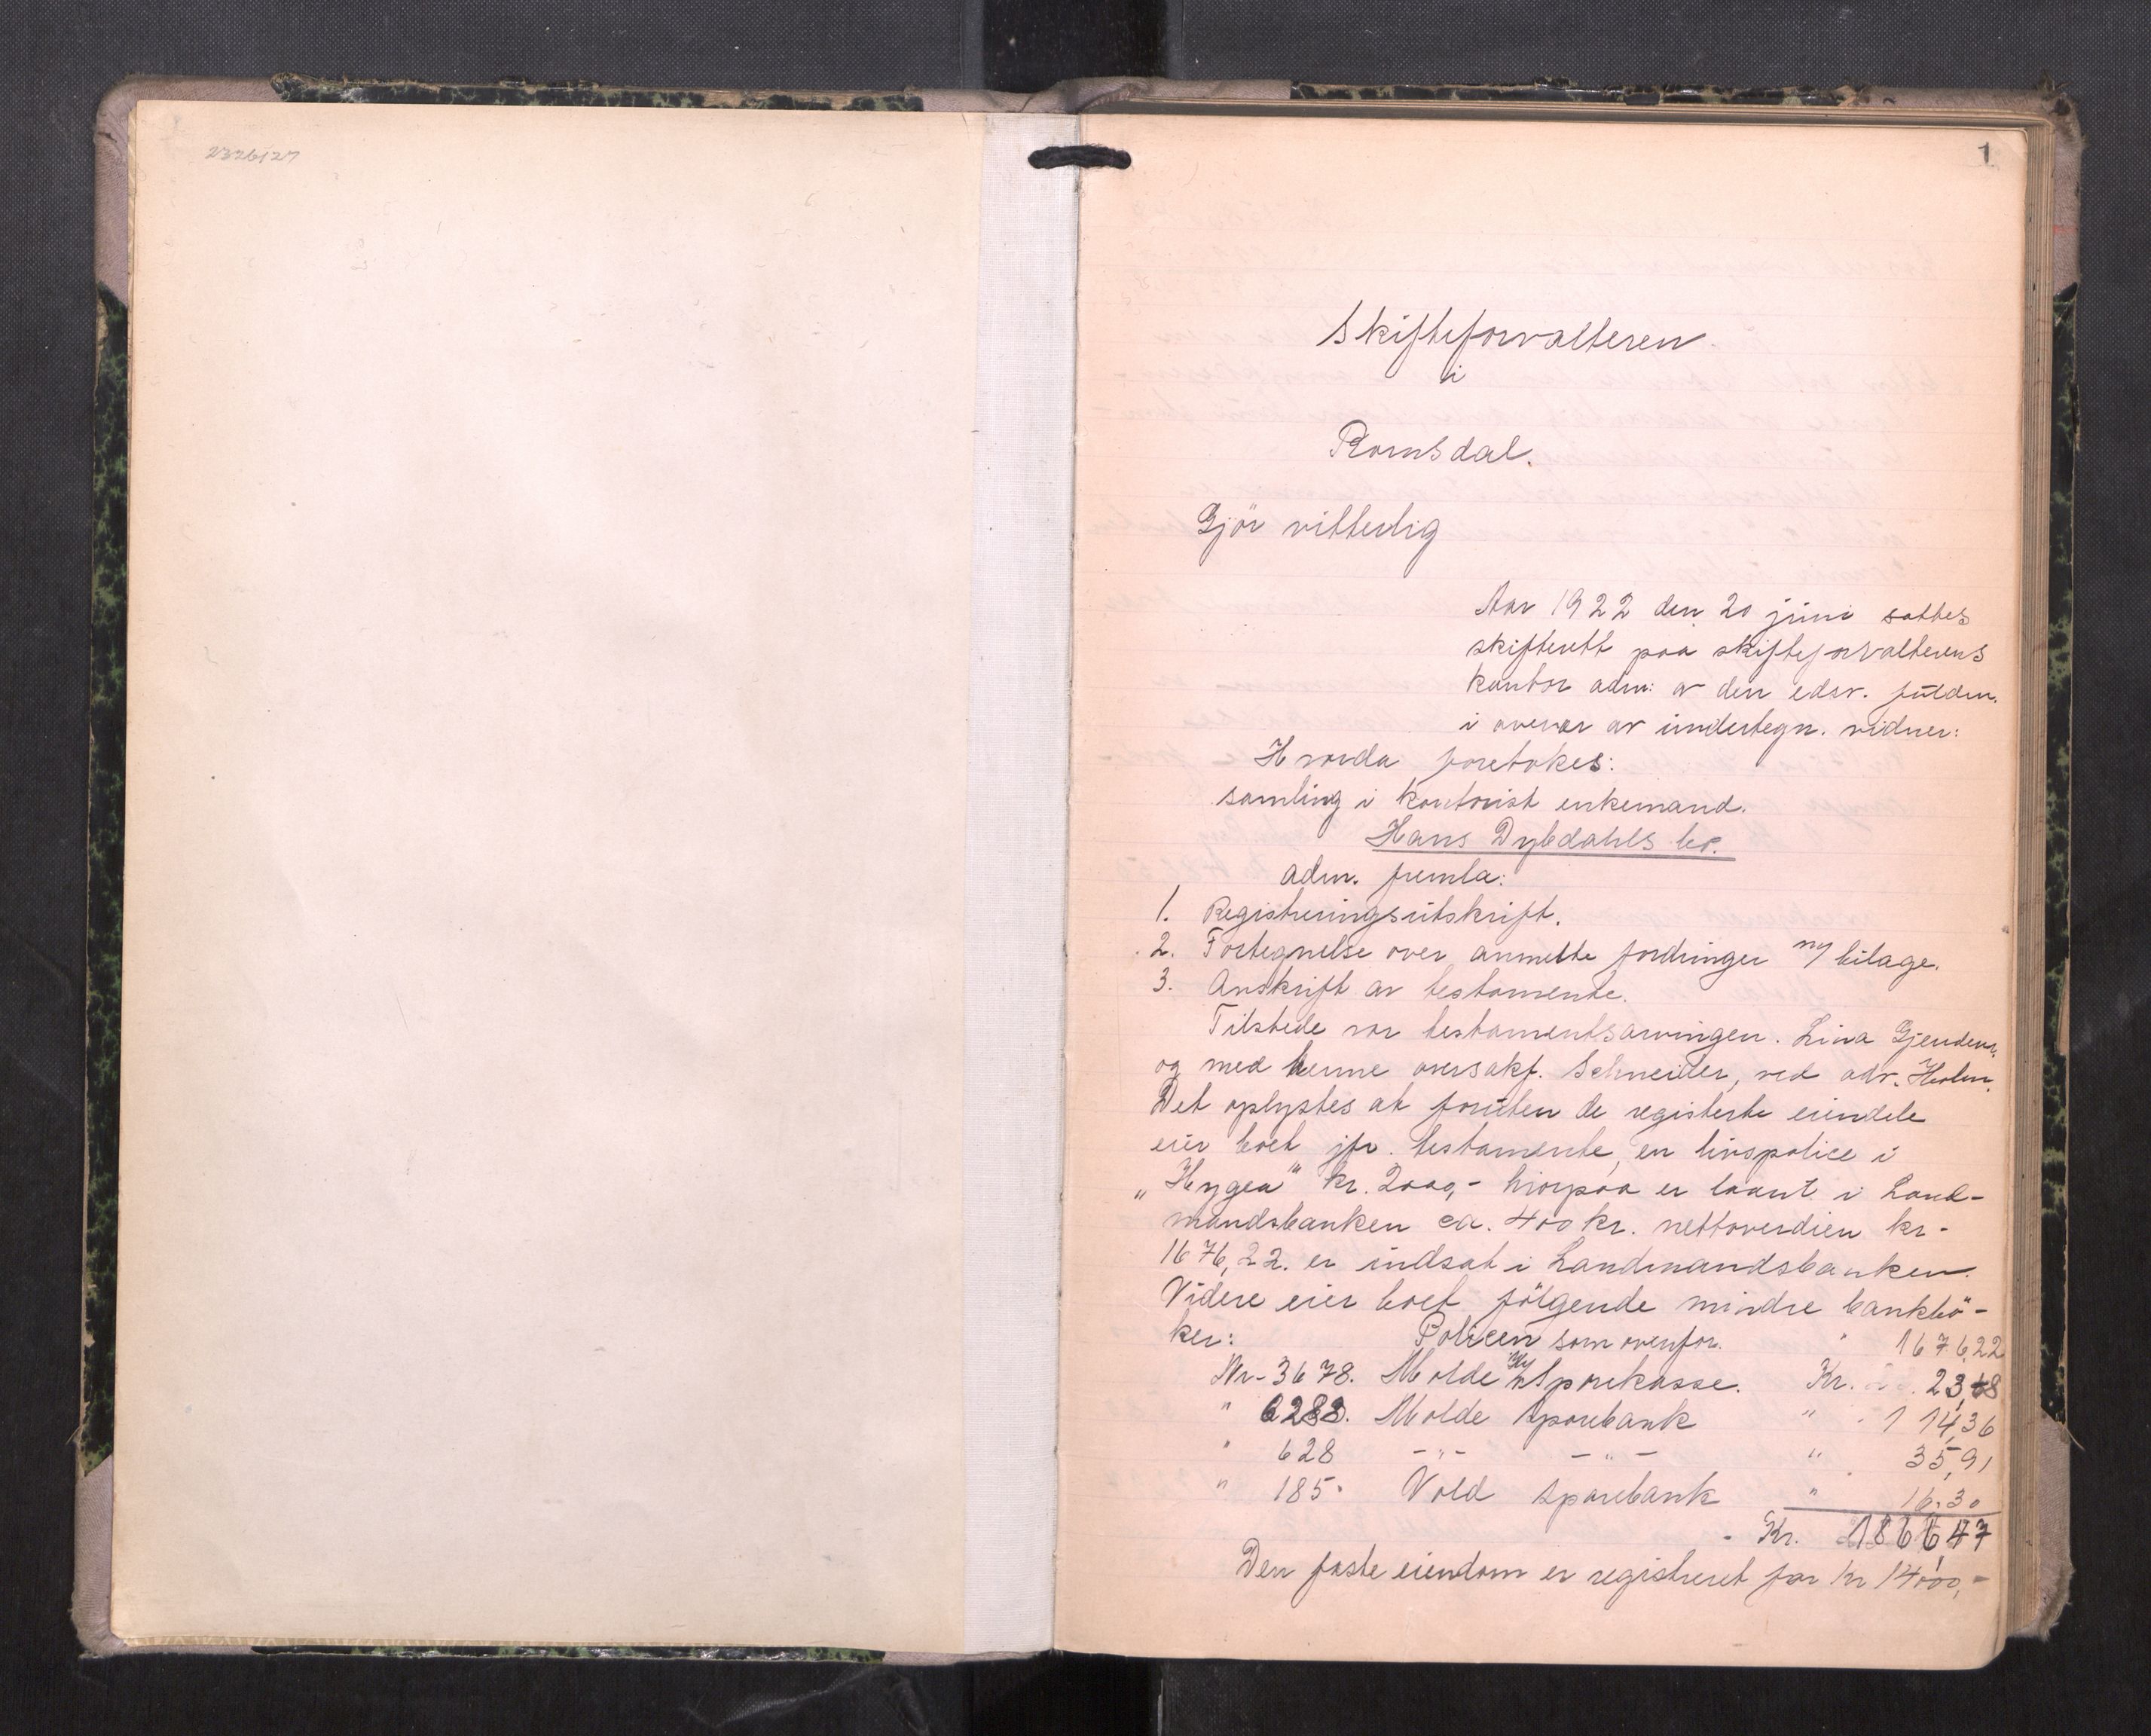 2326127
1
Skifteforvalteren
i
Romsdal.
Gjör vitterlig
Aar 1922 den 20 juni sattes
skifterett paa skifteforvalterens
kontor adm: av den edsv. fuldm.
i overvær av undertegn. vidner:
Hvorda foretokes:
samling i kontorist enkemand.
Hans Dybdahls bo.
adm. fremla:
1. Registreringsutskrift.
2. Fortegnelse over anmeldte fordringer m/ bilage.
3. Avskrift av testamente.
Tilstede var testamentsarvingen. Lina Gjendem
og med henne oversakf. Schneider, ved adv.
Det oplystes at foruten de registerte eiendele
eier boet jfr. testamente, en livspolice i
"Hygea" kr. 2000,- hvorpaa er laant i Land-
mandsbanken ca. 400 kr. nettoverdien kr-
1676,22. er indsat i Landmandsbanken.
Videre eier boet følgende mindre bankbö-
ker: Policen som ovenfor. " 1676,22
Nr- 3678. Molde Sparekasse. Kr. 23,68
" 6288. Molde Sparebank " 114,36
" 628 -"- -"- " 35,91
" 185. Vold Sparebank " 16.30
- Kr. 1866,47
Den faste eiendom er registreret for kr 14000,-